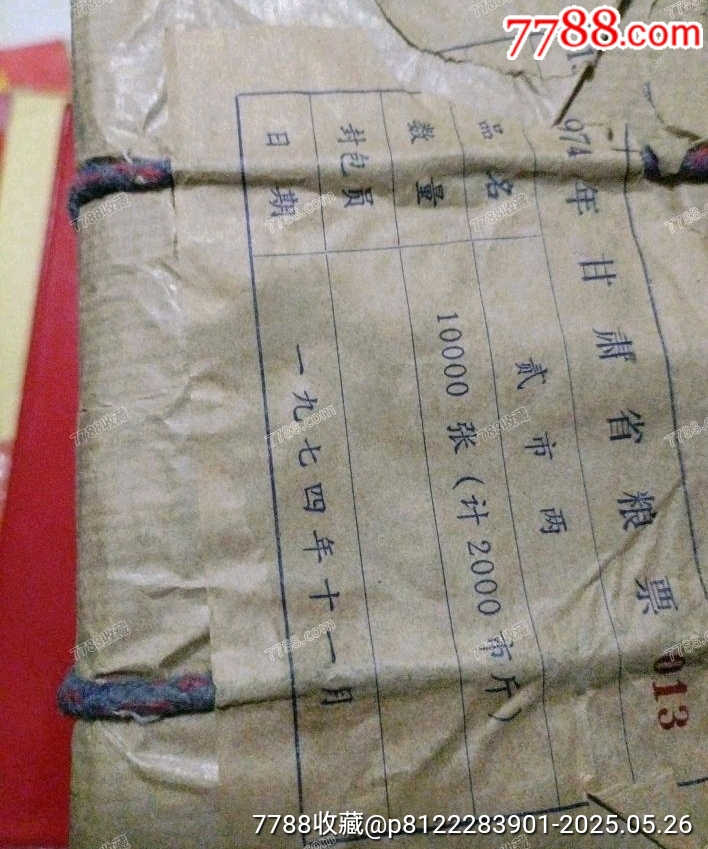 7788.com
1974年甘肃省粮票
013
品名 贰市两
数量 10000张(计2000市斤)
封包员
日期 一九七四年十一月
7788收藏@p8122283901-2025.05.26